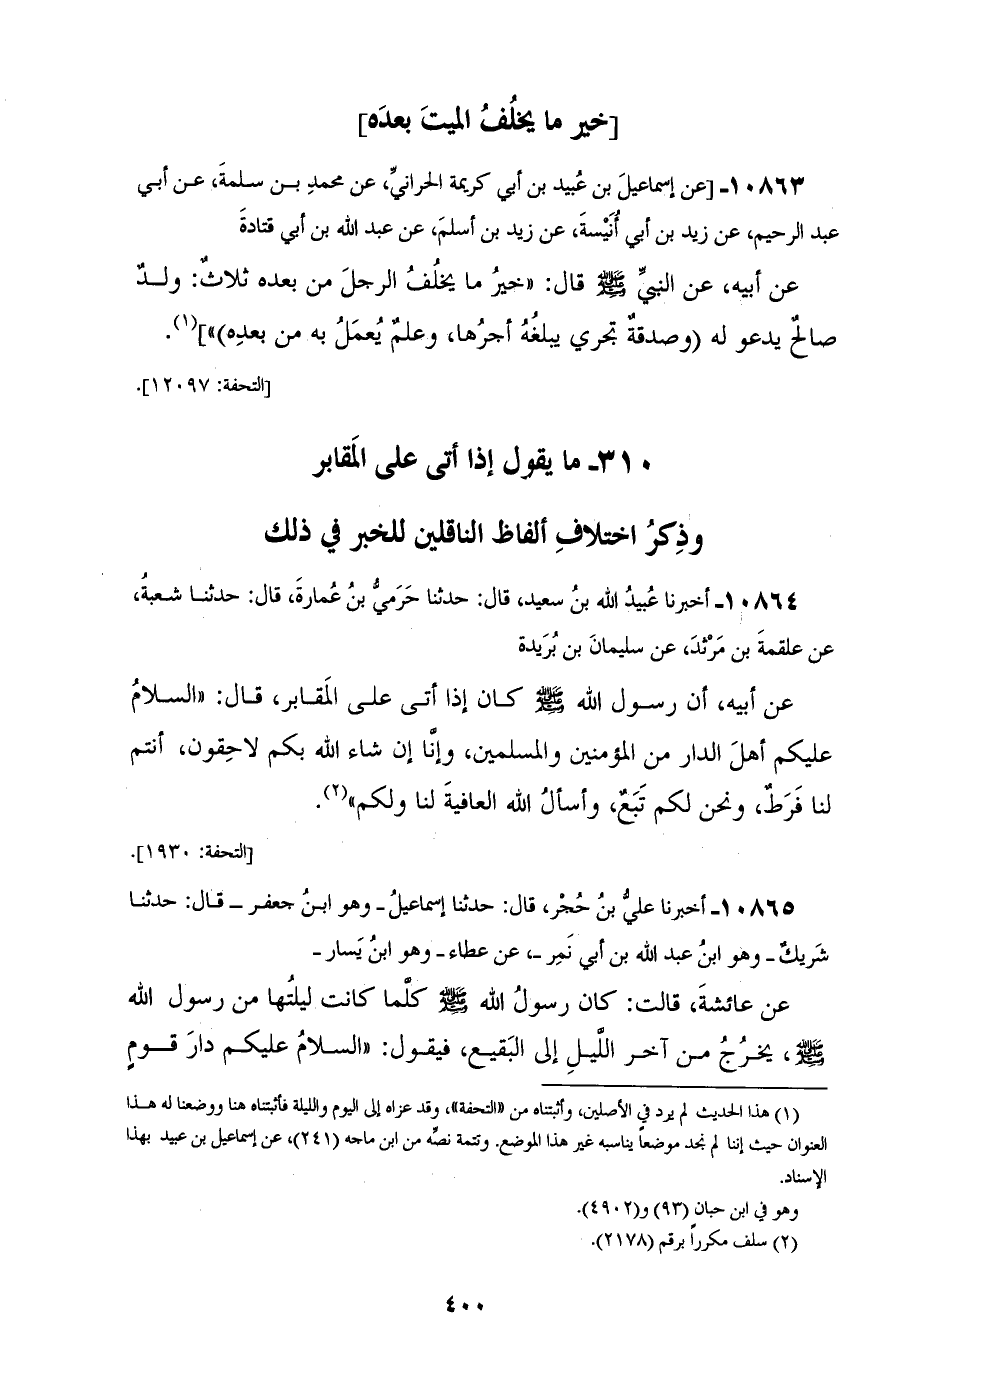 [خير ما يخلُفُ الميتَ بعدَه]
١٠٨٦٣ـ [عن إسماعيلَ بن عُبيد بن أبي كريمة الحرانيِّ، عن محمدِ بـن سلمةَ، عـن أبي
عبد الرحيم، عن زيد بن أبي أُنَيْسةَ، عن زيد بن أسلمَ، عن عبد الله بن أبي قتادةَ
عن أبيه، عن النبيِّ ﷺ قال: «خيرُ ما يخلُفُ الرجلَ من بعده ثلاثٌ: ولـدٌ
صالحٌ يدعو له (وصدقةٌ تجري يبلغُهُ أجرُها، وعلمٌ يُعمَلُ به من بعدِه)»](١).
[التحفة: ١٢٠٩٧].
٣١٠ـ ما يقول إذا أتى على المَقابر
وذِكرُ اختلافِ ألفاظ الناقلين للخبر في ذلك
١٠٨٦٤ـ أخبرنا عُبيدُ الله بنُ سعيد، قال: حدثنا حَرَميُّ بنُ عُمارةَ، قال: حدثنـا شعبةُ،
عن علقمةَ بن مَرْثدَ، عن سليمانَ بن بُرَيدة
عن أبيه، أن رسـول الله ﷺ كـان إذا أتـى علـى المَقـابر، قـال: «السـلامُ
عليكم أهلَ الدار من المؤمنين والمسلمين، وإنَّا إن شاء الله بكم لاحِقون، أنتم
لنا فَرَطٌ، ونحن لكم تَبَعٌ، وأسألُ الله العافيةَ لنا ولكم»(٢).
[التحفة: ١٩٣٠].
١٠٨٦٥ـ أخبرنا عليُّ بنُ حُجْر، قال: حدثنا إسماعيلُ ـ وهو ابـنُ جعفـر ـ قـال: حدثنـا
شَريكٌ ـ وهو ابنُ عبد الله بن أبي نَمِر ـ، عن عطاء ـ وهو ابنُ يَسار ـ
عن عائشةَ، قالت: كان رسولُ الله ﷺ كلَّما كانت ليلتُها من رسول الله
ﷺ، يخـرُجُ مـن آخـر اللَّيلِ إلى البَقيـع، فيقـول: «السـلامُ عليكـم دارَ قـومٍ
(١) هذا الحديث لم يرد في الأصلين، وأثبتناه من «التحفة»، وقد عزاه إلى اليوم والليلة فأثبتناه هنا ووضعنا له هـذا
العنوان حيث إننا لم نجد موضعاً يناسبه غير هذا الموضع. وتتمة نصِّه من ابن ماجه (٢٤١)، عن إسماعيل بن عبيد بهذا
الإسناد.
وهو في ابن حبان (٩٣) و(٤٩٠٢).
(٢) سلف مكرراً برقم (٢١٧٨).
٤٠٠